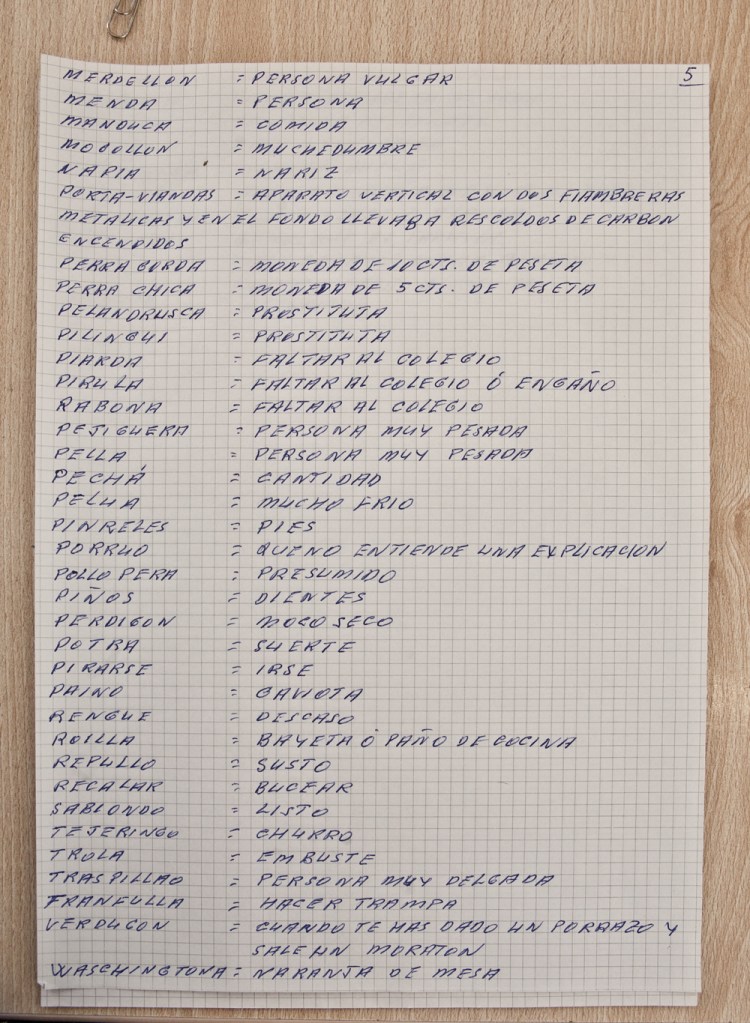 5
MERDELLON = PERSONA VULGAR
MENDA = PERSONA
MANDUCA = COMIDA
MOGOLLON = MUCHEDUMBRE
NAPIA = NARIZ
PORTA-VIANDAS = APARATO VERTICAL CON DOS FIAMBRERAS
METALICAS Y EN EL FONDO LLEVABA RESCOLDOS DE CARBON
ENCENDIDOS
PERRA GORDA = MONEDA DE 10 CTS. DE PESETA
PERRA CHICA = MONEDA DE 5 CTS. DE PESETA
PELANDRUSCA = PROSTITUTA
PILINGUI = PROSTITUTA
PIARDA = FALTAR AL COLEGIO
PIRULA = FALTAR AL COLEGIO Ó ENGAÑO
RABONA = FALTAR AL COLEGIO
PEJIGUERA = PERSONA MUY PESADA
PELLA = PERSONA MUY PESADA
PECHÁ = CANTIDAD
PELUA = MUCHO FRIO
PINRELES = PIES
PORRUO = QUE NO ENTIENDE UNA EXPLICACION
POLLO PERA = PRESUMIDO
PIÑOS = DIENTES
PERDIGON = MOCO SECO
POTRA = SUERTE
PIRARSE = IRSE
PAINO = GAVIOTA
RENGUE = DESCASO
ROILLA = BAYETA Ó PAÑO DE COCINA
REPULLO = SUSTO
RECALAR = BUCEAR
SABIONDO = LISTO
TEJERINGO = CHURRO
TROLA = EMBUSTE
TRASPILLAO = PERSONA MUY DELGADA
FRANFULLA = HACER TRAMPA
VERDUGON = CUANDO TE HAS DADO UN PORRAZO Y
SALE UN MORATON
WASCHINGTONA = NARANJA DE MESA